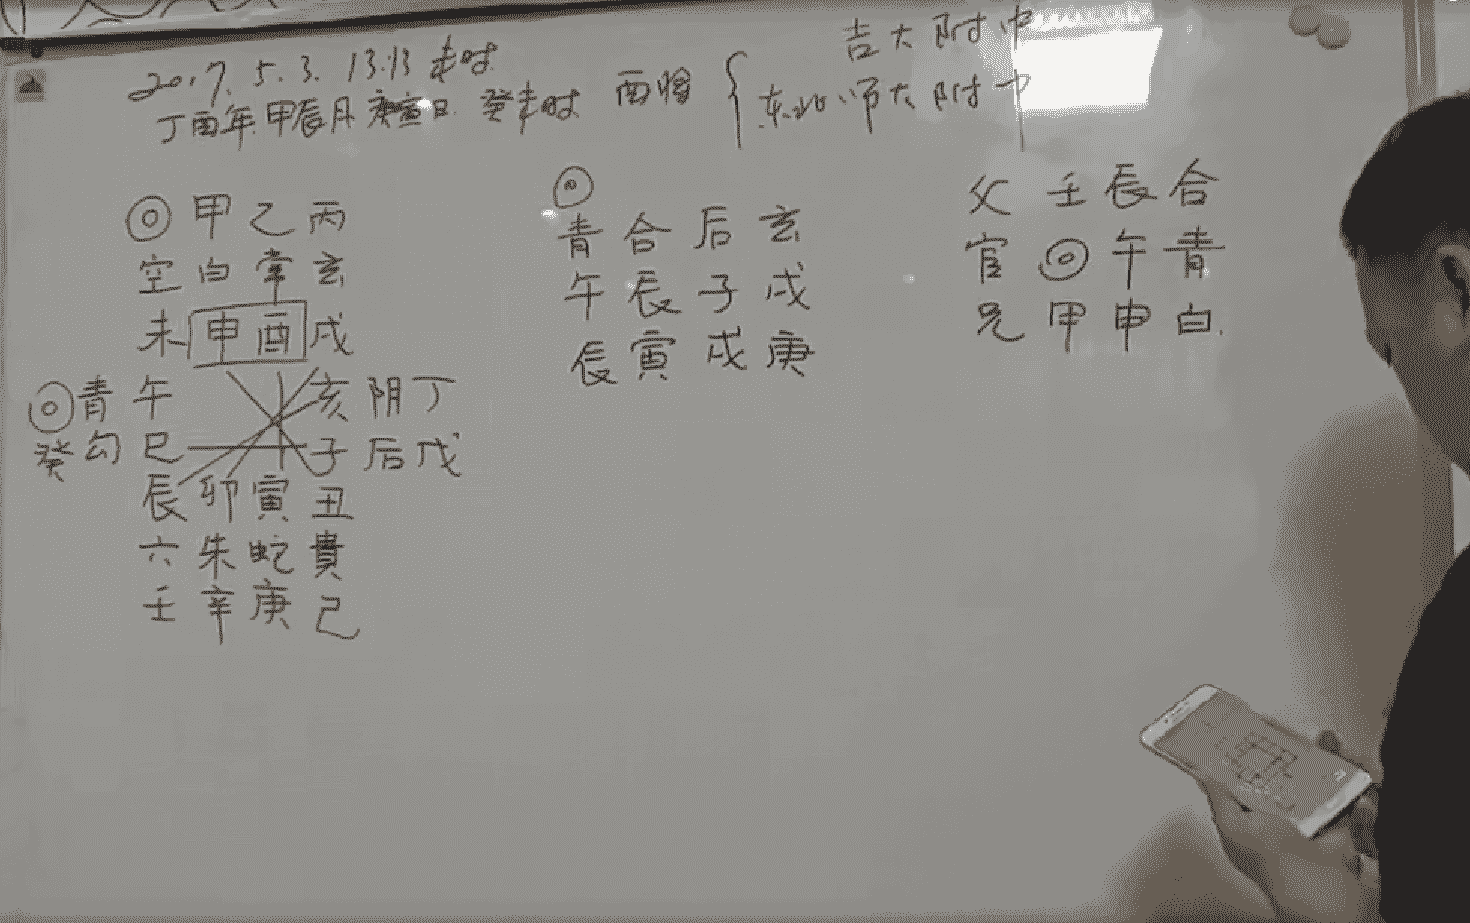 2017. 5. 3. 13:13 未时
丁酉年 甲辰月 庚寅日 癸未时 酉将
吉大附中
东北师大附中
◎ 甲 乙 丙
空 白 常 玄
未 申 酉 戌
◎ 青 午 亥 阴 丁
癸 勾 巳 子 后 戊
辰 卯 寅 丑
六 朱 蛇 貴
壬 辛 庚 己
◎
青 合 后 玄
午 辰 子 戌
辰 寅 戌 庚
父 壬 辰 合
官 ◎ 午 青
兄 甲 申 白